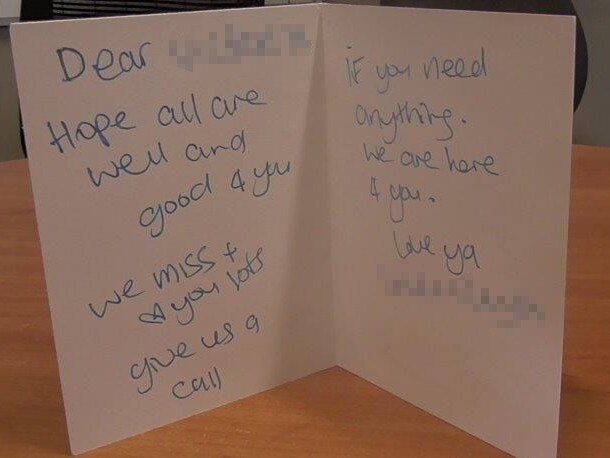 Dear
Hope all are
well and
good 4 you
we miss +
♡ you lots
give us a
call
if you need
anything.
we are here
4 you.
love ya